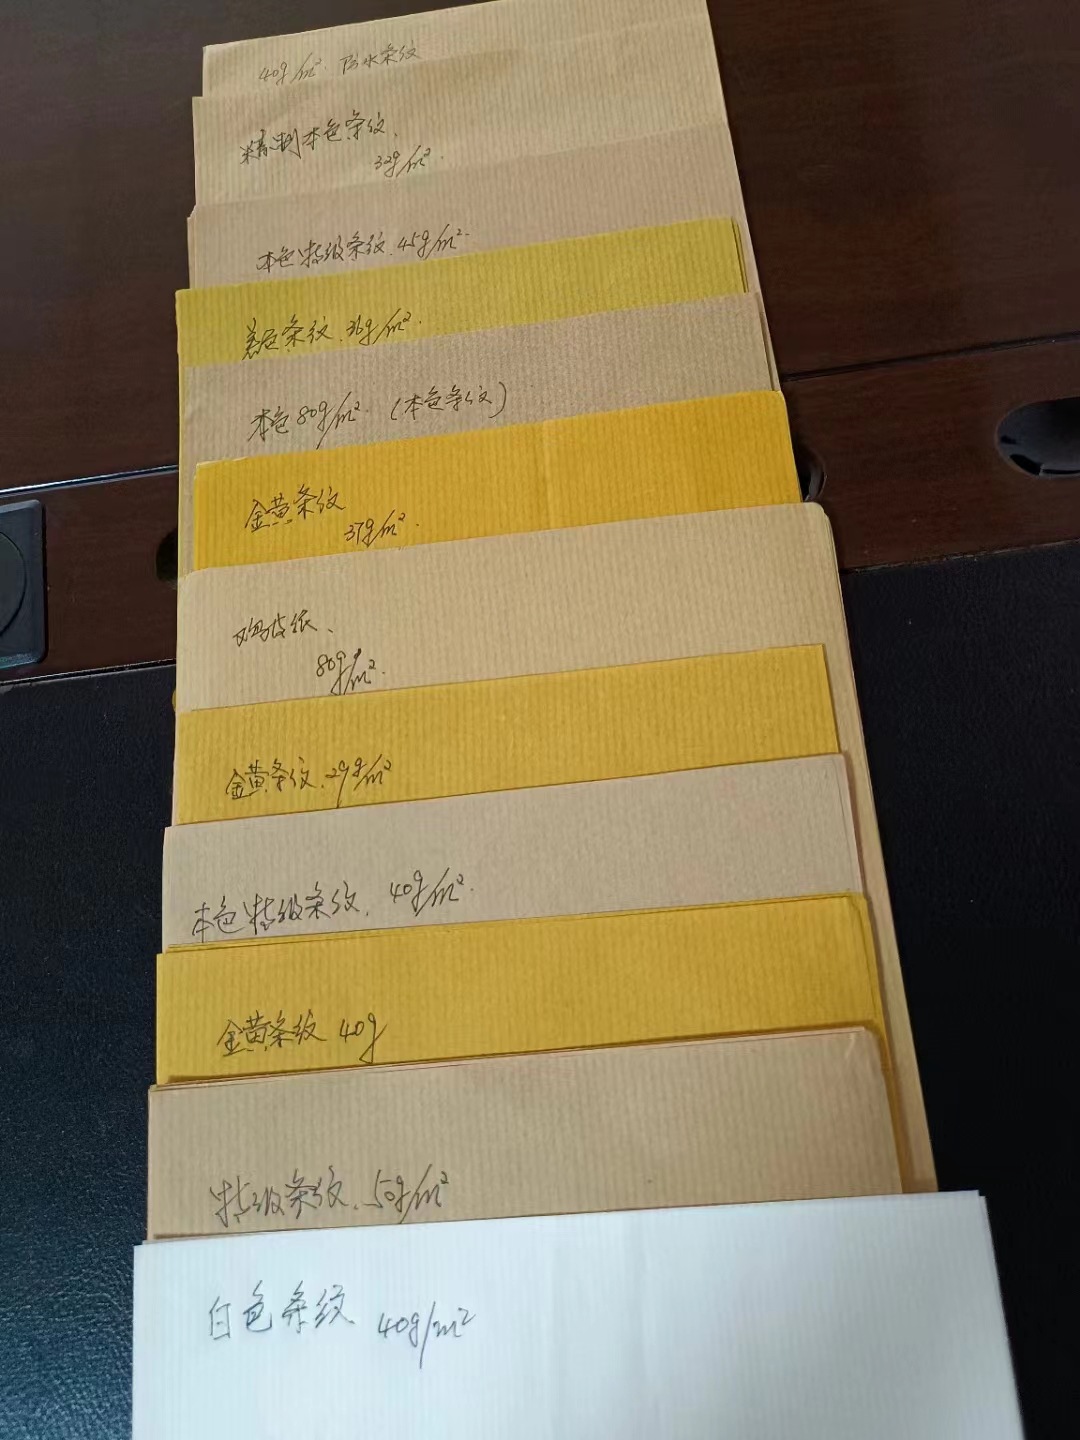 40g/m². 防水条纹
精制本色条纹、
32g/m².
本色特级条纹. 45g/m².
条纹. 36g/m².
本色80g/m². (本色条纹)
金黄条纹
37g/m².
皮纸、
80g/m².
金黄条纹. 29g/m²
本色特级条纹. 40g/m².
金黄条纹 40g
特级条纹. 50g/m²
白色条纹 40g/m²